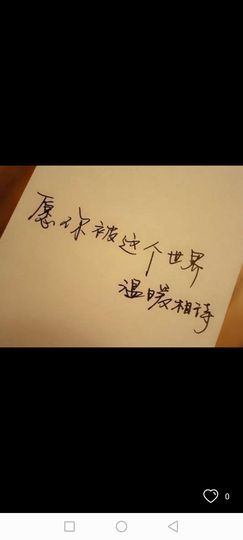 愿你被这个世界
温暖相待
0